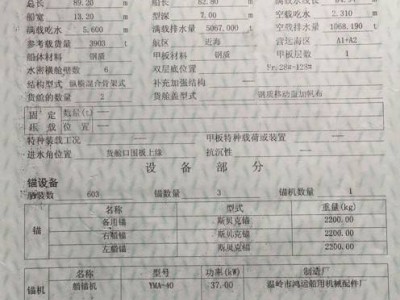 总长 89.20 船长 82.80 满载水线长 84.94
船宽 13.20 型深 7.00 空载吃水 2.310
满载吃水 5.600 满载排水量 5067.000 空载排水量 1068.190
参考载货量 3903 t 航区 近海 营运海区 A1+A2
船体材料 钢质 甲板材料 钢质 甲板层数 1
水密横舱壁数 6 双层底位置
结构型式 纵横混合骨架式 补充加强结构
货舱的数量 2 货舱盖型式 钢质移动盖加帆布
固定 数量(t)
压载 位置
特种装载工况 甲板特种载荷或装置
进水角位置 货舱口围板上缘 抗沉性
设备部分
锚设备
舾装数 603 锚数量 3 锚机数量 1
名称 型式 重量(kg)
锚 备用锚 斯贝克锚 2200.00
右艏锚 斯贝克锚 2200.00
左艏锚 斯贝克锚 2200.00
名称 型号 功率(kW) 制造厂
锚机 艏锚机 YMA-40 37.00 温岭市鸿运船用机械配件厂